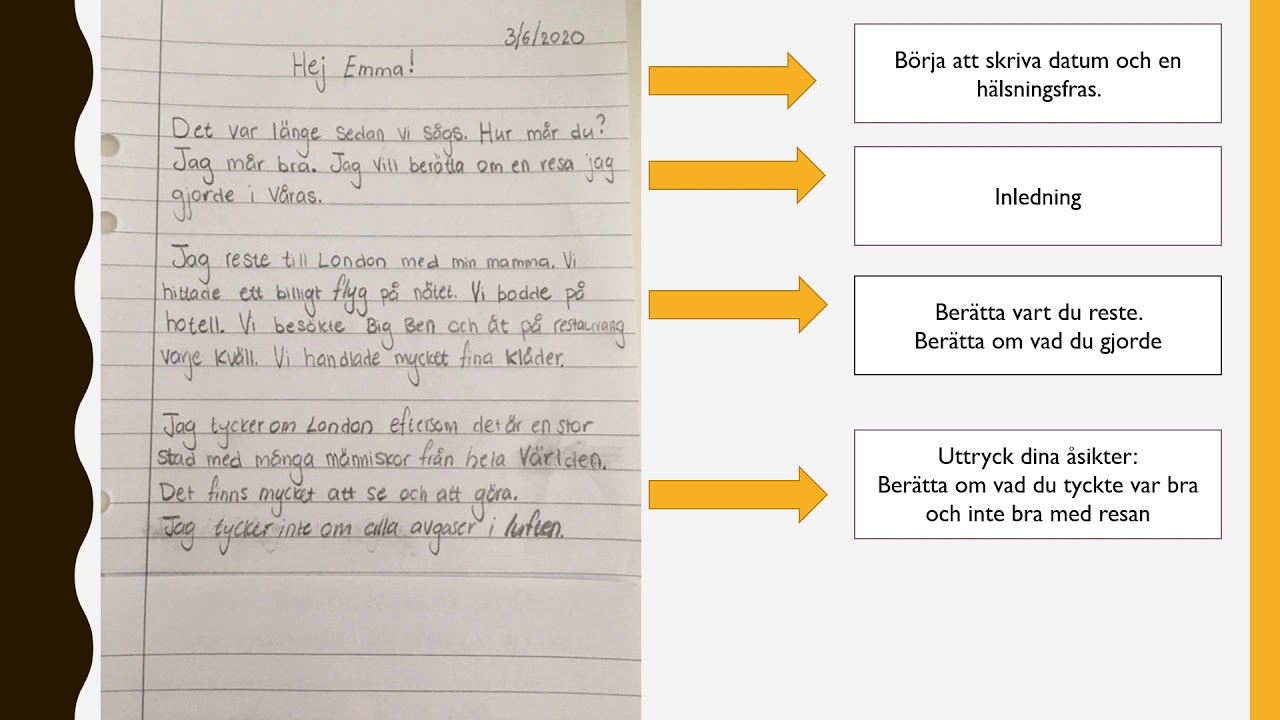 3/6/2020
Hej Emma!
Det var länge sedan vi sågs. Hur mår du?
Jag mår bra. Jag vill berätta om en resa jag
gjorde i våras.
Jag reste till London med min mamma. Vi
hittade ett billigt flyg på nätet. Vi bodde på
hotell. Vi besökte Big Ben och åt på restaurang
varje kväll. Vi handlade mycket fina kläder.
Jag tycker om London eftersom det är en stor
stad med många människor från hela världen.
Det finns mycket att se och att göra.
Jag tycker inte om alla avgaser i luften.
Börja att skriva datum och en
hälsningsfras.
Inledning
Berätta vart du reste.
Berätta om vad du gjorde
Uttryck dina åsikter:
Berätta om vad du tyckte var bra
och inte bra med resan